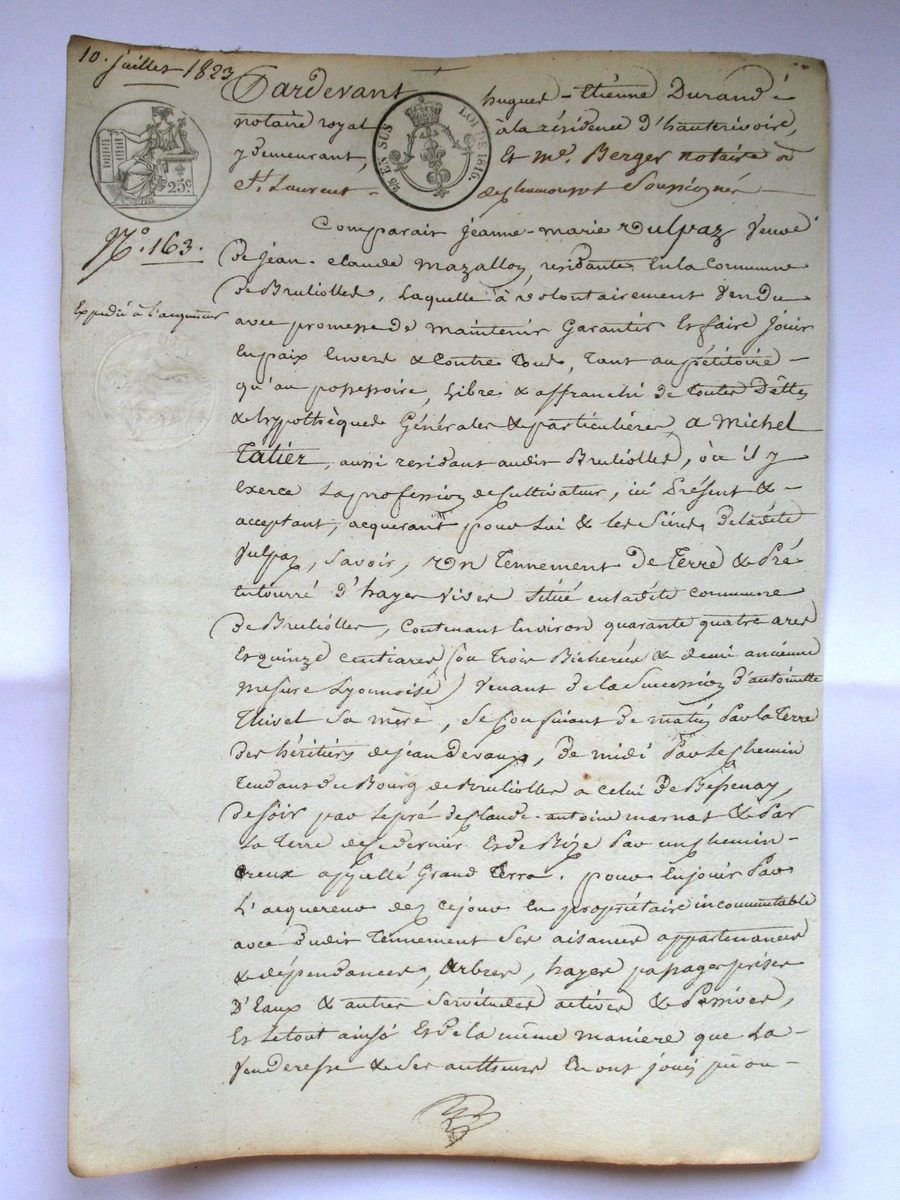 10. juillet 1823
Pardevant hugues-Etiénne Durand é
notaire royal à la résidence d'hauterivoire,
y demeurant, Et me. Berger notaire à
St. Laurent - de chamousset Soussignés
25c
3/5 EN SUS LOI DE 1816.
Comparait Jeanne-marie Vulpaz Veuve
N.o 163.
de Jean-claude mazalloy, residante En la Commune
de Brulioller, Laquelle à volontairement Vendu
Expedié à l'acquereur
avec promesse de maintenir Garantir Et faire Jouir
En paix Envers & Contre Tous, Tant au pétitoire -
qu'au possessoire, Libre & affranchi de toutes Dettes
& hypothèques Générales & particulières, a Michel
Tatier, aussi residant audit Brulioller, où il y
Exerce La profession de Cultivateur, ici Présent & -
acceptant, acquerant pour Lui & les Siens de ladite
Vulpaz, Savoir, Un Tennement de Terre & Pré
Entourré d'hayes vives Situé en ladite commune
de Brulioller, Contenant Environ quarante quatre ares
Et quinze centiares (ou Trois Bicherées & demi ancienne
mesure Lyonnoise) Venant de la Succession d'antoinette
Thivel Sa mère, Se Confinant de matin Par la Terre
des héritiers de jean devaux, De midi Par Le chemin
Tendant du Bourg de Brulioller a celui de Bessenay,
de Soir par Le pré de Claude-antoine marnas & Par
La Terre de Ce dernier Et de Bize Par un chemin -
Creux appellé Grand Terra. pour En jouir Par
L'acquereur dez ce jour En propriétaire incommutable
avec Dudit Tennement Ses aisances appartenances
& dépendances, Arbres, hayes passages prises
D'Eaux & autres Servitudes actives & Passives,
Et Le tout ainsi Et de la même maniere que La -
Venderesse & Ses autheurs En ont jouis pû ou -